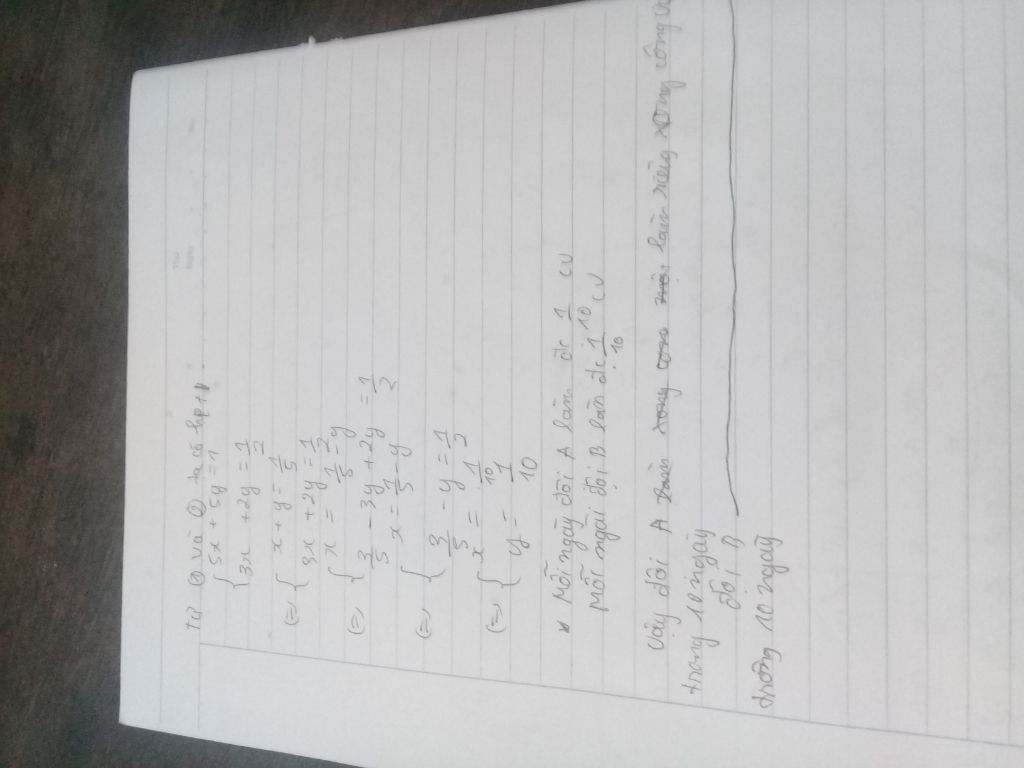 Từ ① và ② ta có hệ pt
{ 5x + 5y = 1
3x + 2y = 1/2
(=) { x + y = 1/5
3x + 2y = 1/2
(=) { x = 1/5 - y
3/5 - 3y + 2y = 1/2
(=) { x = 1/5 - y
3/5 - y = 1/2
(=) { x = 1/10
y = 1/10
Mỗi ngày đội A làm đc 1/10 CV
Mỗi ngại đội B làm đc 1/10 CV
Vậy đội A làm riêng công
trong 10 ngày
đội B
trong 10 ngày